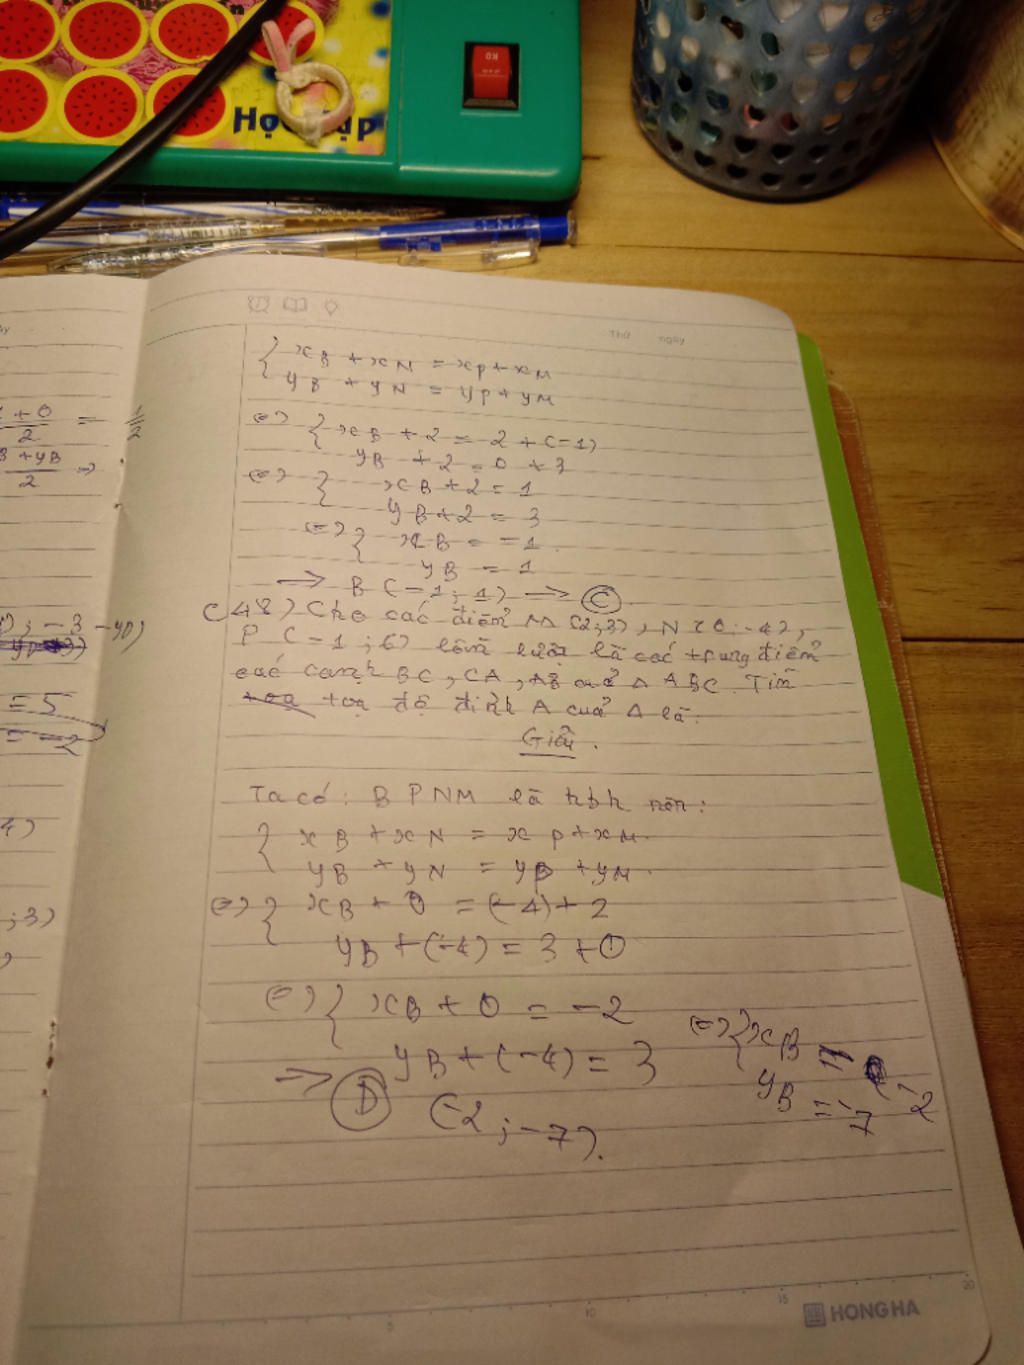 Học tập
Thứ ngày
{ xB + xN = xP + xM
yB + yN = yP + yM
<=> { xB + 2 = 2 + (-1)
yB + 2 = 0 + 3
<=> { xB + 2 = 1
yB + 2 = 3
<=> { xB = -1
yB = 1
=> B (-1; 1) -> C
C48) Cho các điểm M (2;3), N (0; -4),
P (-1; 6) lần lượt là các trung điểm
các cạnh BC, CA, AB của Δ ABC. Tìm
toạ độ đỉnh A của Δ là:
Giải.
Ta có: BPNM là hbh nên:
{ xB + xN = xP + xM.
yB + yN = yP + yM.
<=> { xB + 0 = (-4) + 2
yB + (-4) = 3 + 0
<=> { xB + 0 = -2
yB + (-4) = 3
<=> { xB = -2
yB = -7
=> D (-2; -7).
+ 0 / 2 = 1/2
+ yB / 2 =>
; -3 - yD)
= 5
= -2
4)
; 3)
5 10 15 20
HONG HA